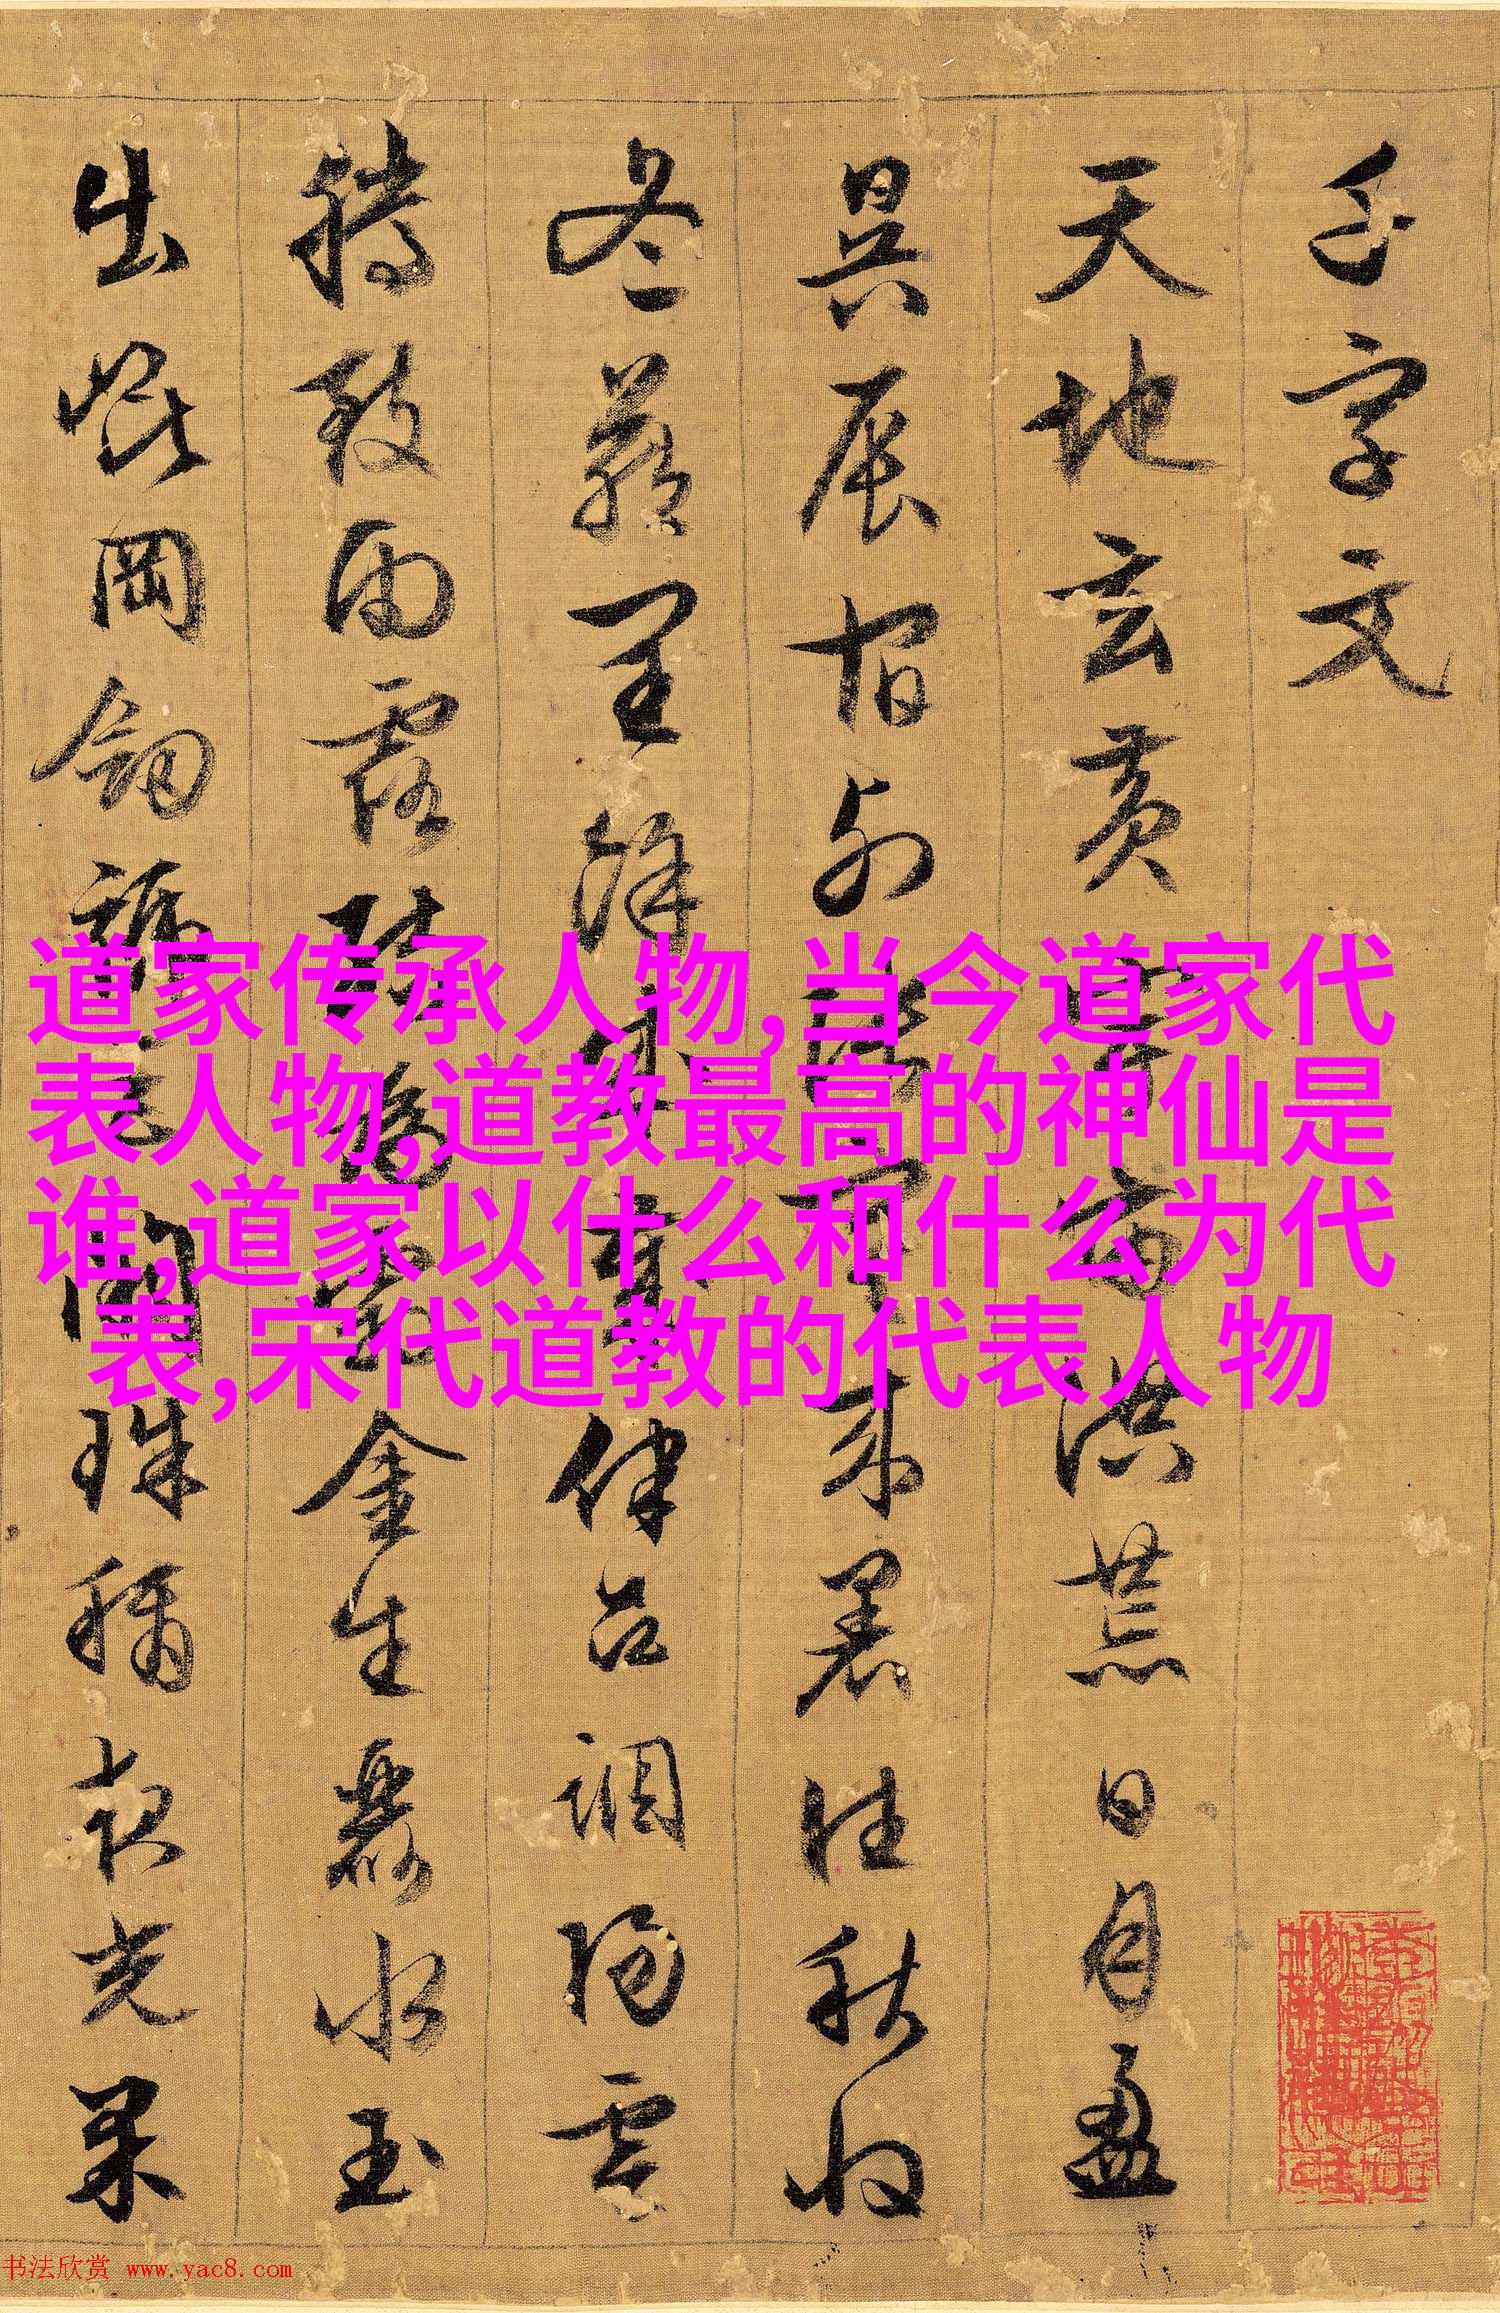 千字文
天地玄黄宇宙洪荒日月盈
昃辰宿列張寒來暑往秋收
冬藏閏餘成歲律召調陽雲
騰致雨露結為霜金生麗水玉
出崐岡劍號巨闕珠稱夜光果
道家传承人物,当今道家代
表人物,道教最高的神仙是
谁,道家以什么和什么为代
表,宋代道教的代表人物
书法欣赏 www.yac8.com